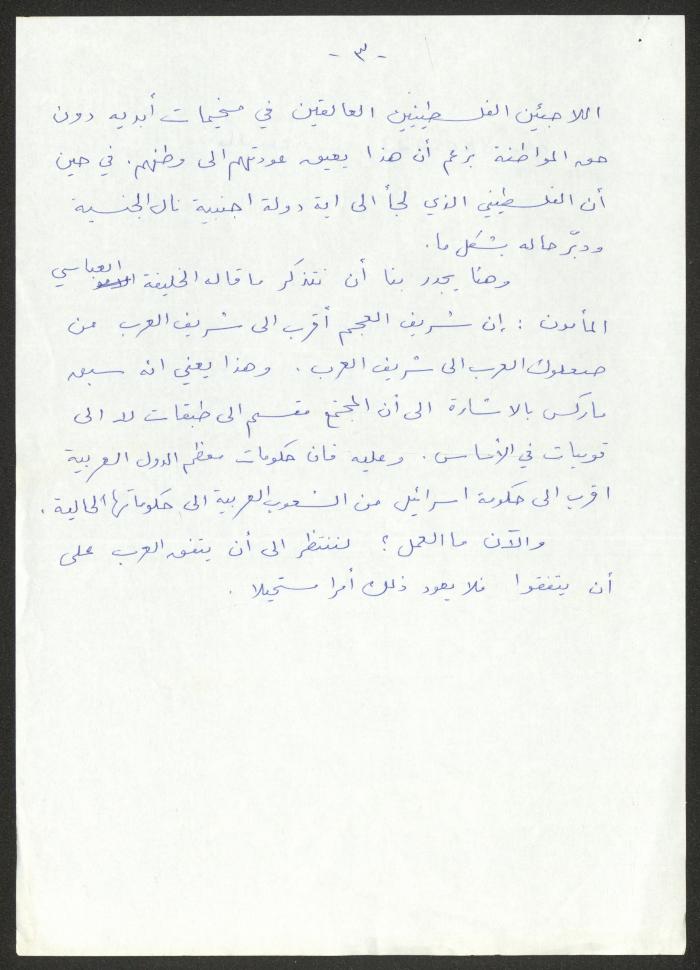 - ٣ -
اللاجئين الفلسطينيين العالقين في مخيمات أبديه دون
حق المواطنة بزعم أن هذا يعيق عودتهم الى وطنهم. في حين
أن الفلسطيني الذي لجأ الى اية دولة اجنبية نال الجنسية
ودبّر حاله بشكل ما.
وهنا يجدر بنا أن نتذكر ما قاله الخليفة العباسي
المأمون : إن شريف العجم أقرب الى شريف العرب من
صعلوك العرب الى شريف العرب. وهذا يعني انه سبق
ماركس بالاشارة الى أن المجتمع مقسم الى طبقات لا الى
قوميات في الأساس. وعليه فان حكومات معظم الدول العربية
اقرب الى حكومة اسرائيل من الشعوب العربية الى حكوماتها الحالية.
والآن ما العمل؟ لننتظر الى أن يتفق العرب على
أن يتفقوا فلا يعود ذلك أمرا مستحيلا.